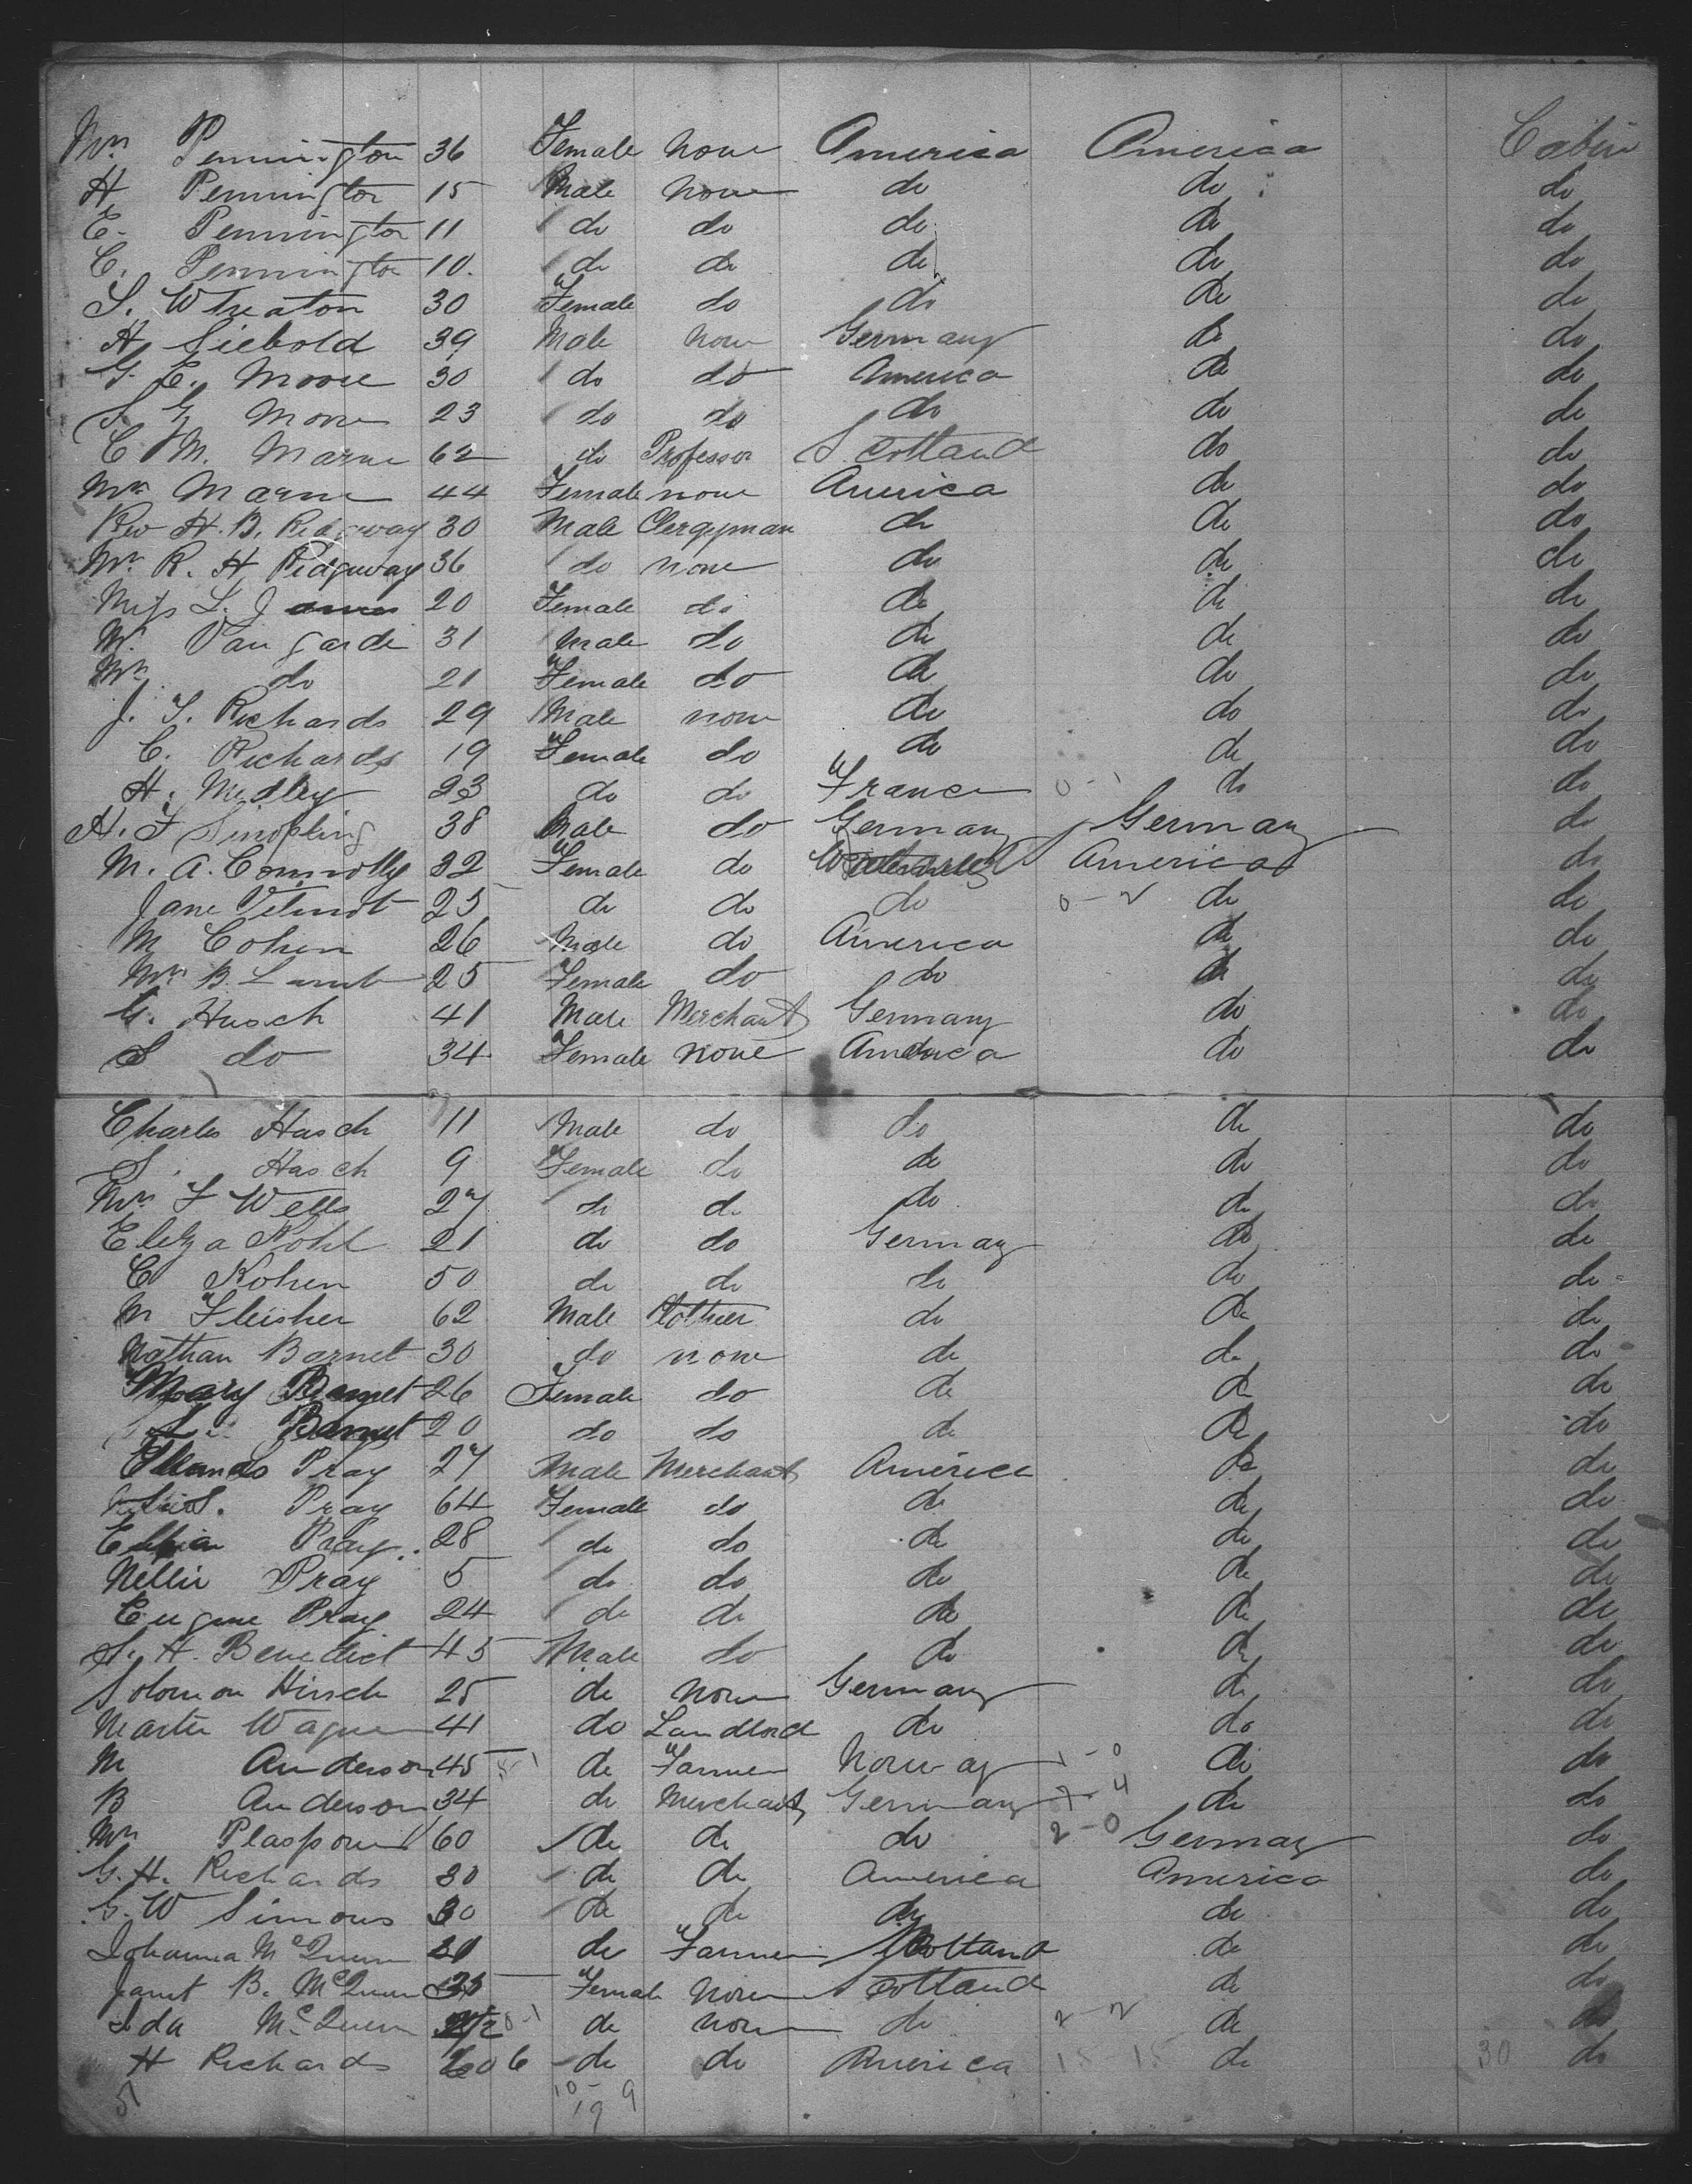 Mrs Pennington 36 Female none America America Cabin
H Pennington 15 Male none do do do
E. Pennington 11 do do do do do
C. Pennington 10. do do do do do
S. Wheaton 30 Female do do do do
H Siebold 39 Male none Germany do do
G. E. Moore 30 do do America do do
S. G. Moore 23 do do do do do
C M. Marne 62 do Professor Scotland do do
Mrs Marne 44 Female none America do do
Rev H. B. Ridgway 30 Male Clergyman do do do
Mr. R. H. Ridgway 36 do none do do do
Miss L. James 20 Female do do do do
Mr. Van garde 31 Male do do do do
Mrs do 21 Female do do do do
J. T. Richards 29 Male none do do do
C. Richards 19 Female do do do do
H. Medley 23 do do France 0-1 do do
H. F 38 Male do Germany Germany do
M. A. Connolly 32 Female do America do
Jane 25 do do do 0-2 do do
M Cohen 26 Male do America do do
Mrs B. Lamb 25 Female do do do do
G. Hasch 41 Male Merchant Germany do do
S do 34 Female none America do do
Charles Hasch 11 Male do do do do
S. Hasch 9 Female do do do do
Mrs F Wells 27 do do do do do
Eliza Kohl 21 do do Germany do do
C Kohen 50 do do do do do
M Fleisher 62 Male Clothier do do do
Nathan Barnet 30 do none do do do
Mary Barnet 26 Female do do do do
Barnet 20 do do do do do
Pray 27 Male Merchant America do do
Pray 64 Female do do do do
Pray 28 do do do do do
Nellie Pray 5 do do do do do
Eugene Pray 24 do do do do do
S. H. Benedict 45 Male do do do do
Solomon Hirsch 25 do none Germany do do
Martin Wagner 41 do Landlord do do do
M Anderson 45 do Farmer Norway 1-0 do do
B Anderson 34 do Merchant Germany 7-4 do do
Mrs 60 do do do 2-0 Germany do
G. H. Richards 30 do do America America do
G. W Simons 30 do do do do do
Johanna McQueen 31 do Farmer Scotland do do
Janet B. McQueen Female none Scotland do do
Ida McQueen 0-1 do none do 2-2 do do
H Richards 6 do do America 15-15 do 30 do
51 10-9
19